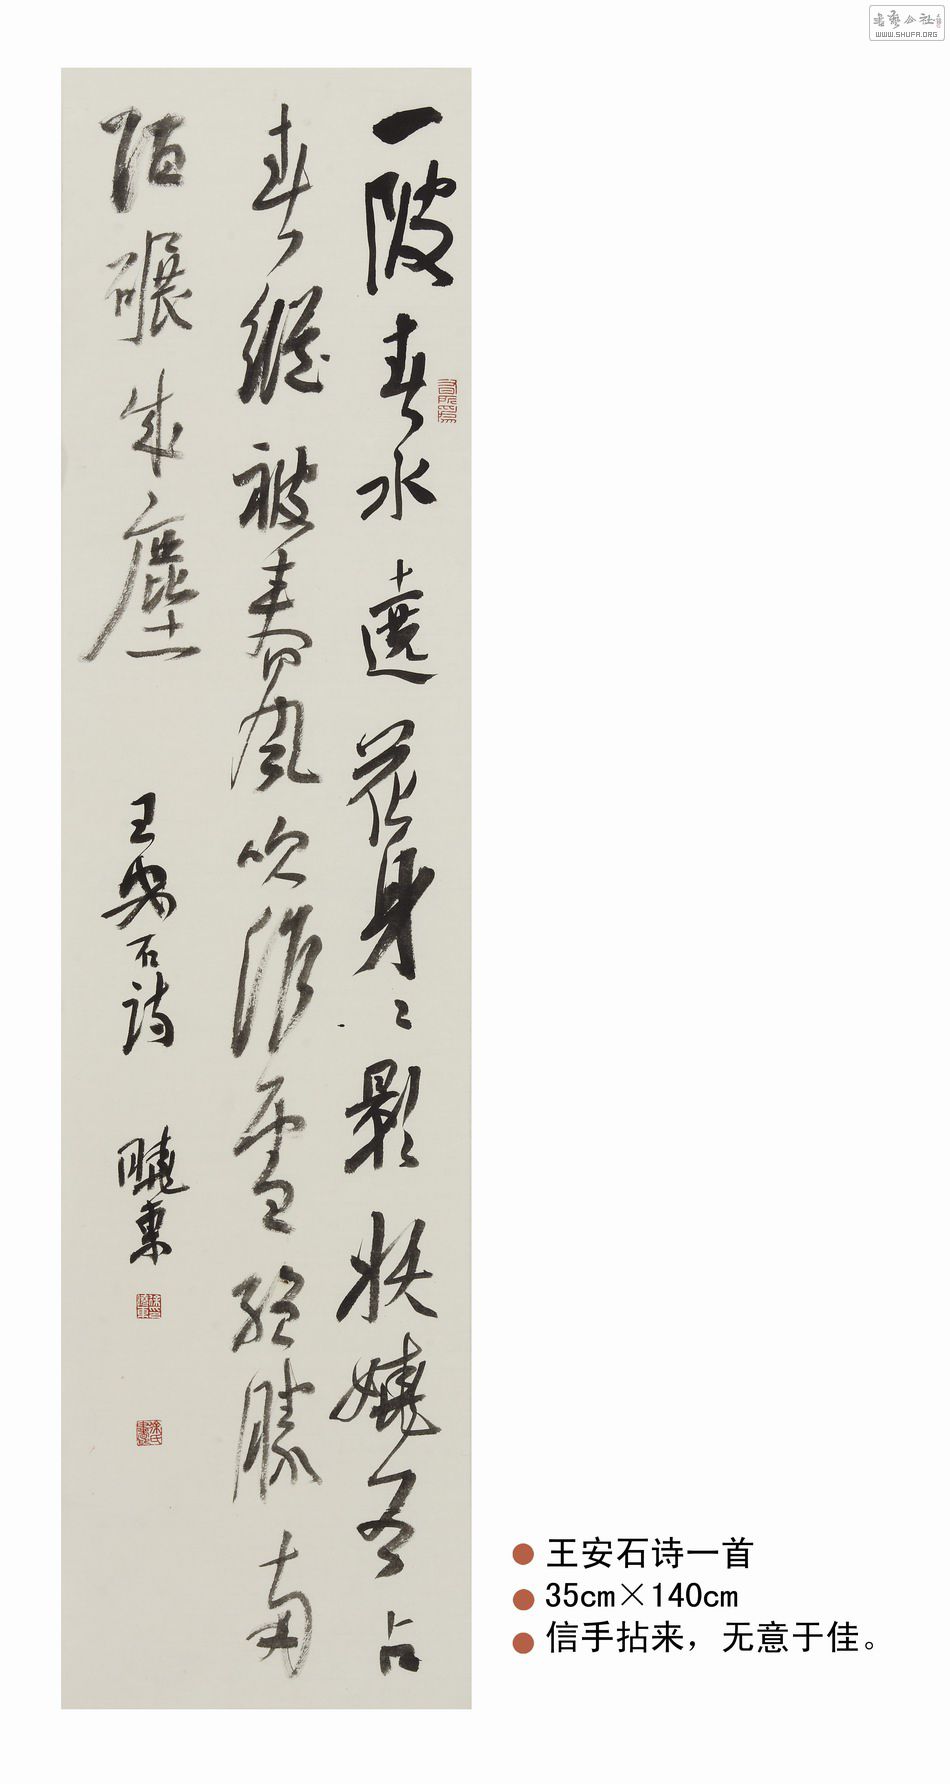 一陂春水遶花身身影妖嬈各占
春縱被春風吹作雪絕勝南
陌碾成塵
王安石詩
曉東
王安石诗一首
35cm×140cm
信手拈来，无意于佳。
WWW.SHUFA.ORG